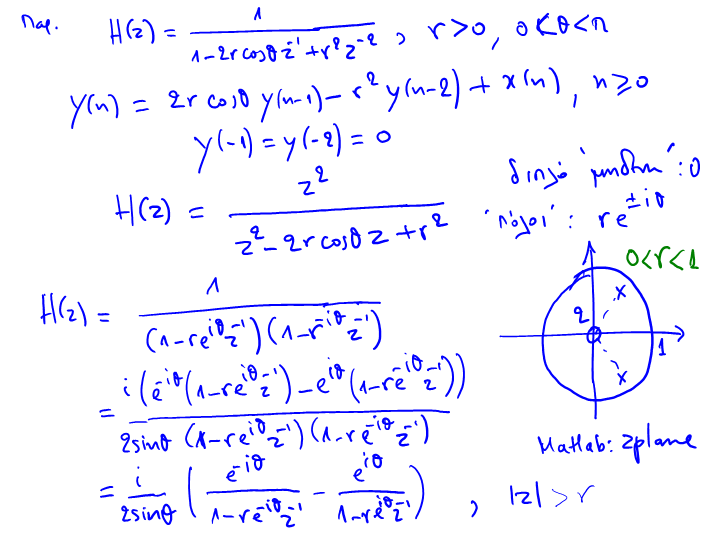 Παρ. H(z) = 1 / (1-2r cosθ z^-1 + r^2 z^-2) , r>0, 0<θ<π
y(n) = 2r cosθ y(n-1) - r^2 y(n-2) + x(n), n≥0
y(-1) = y(-2) = 0
H(z) = z^2 / (z^2 - 2r cosθ z + r^2)
διπλό 'μηδέν': 0
'πόλοι': re^{±iθ}
0<r<1
2
1
H(z) = 1 / ((1-re^{iθ}z^-1)(1-re^{-iθ}z^-1))
= i(e^{-iθ}(1-re^{iθ}z^-1) - e^{iθ}(1-re^{-iθ}z^-1)) / (2sinθ (1-re^{iθ}z^-1)(1-re^{-iθ}z^-1))
Matlab: zplane
= i/(2sinθ) ( e^{-iθ}/(1-re^{-iθ}z^-1) - e^{iθ}/(1-re^{iθ}z^-1) ) , |z|>r